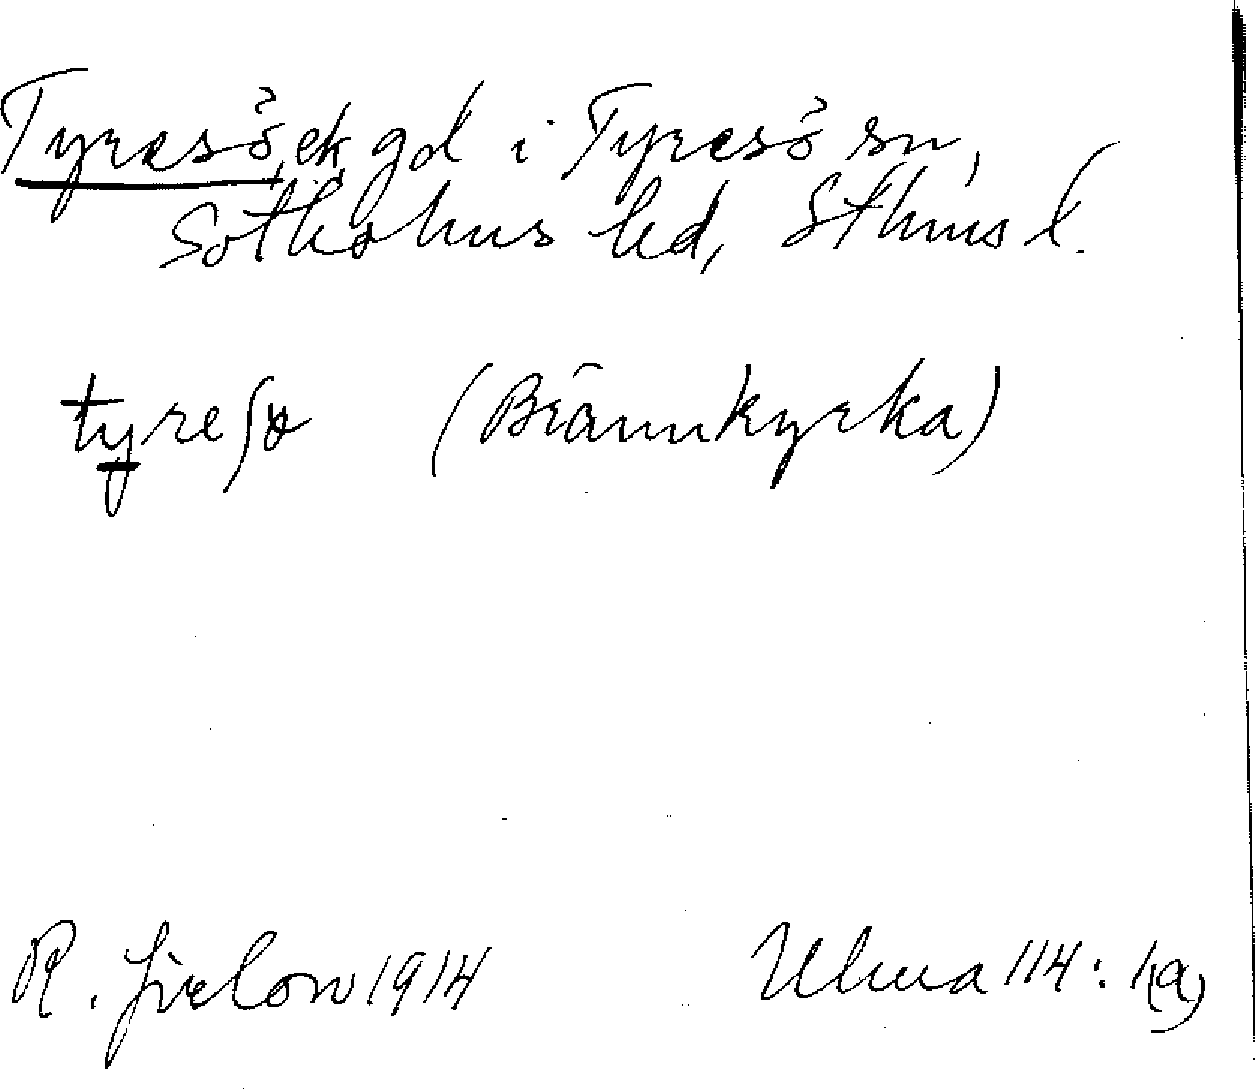 Tyresö, ek, gd i Tyresö sn,
Sotholms hd, Sthms l.
tyresø (Brännkyrka)
R. Jirlow 1914 Ulma 114:1(a)